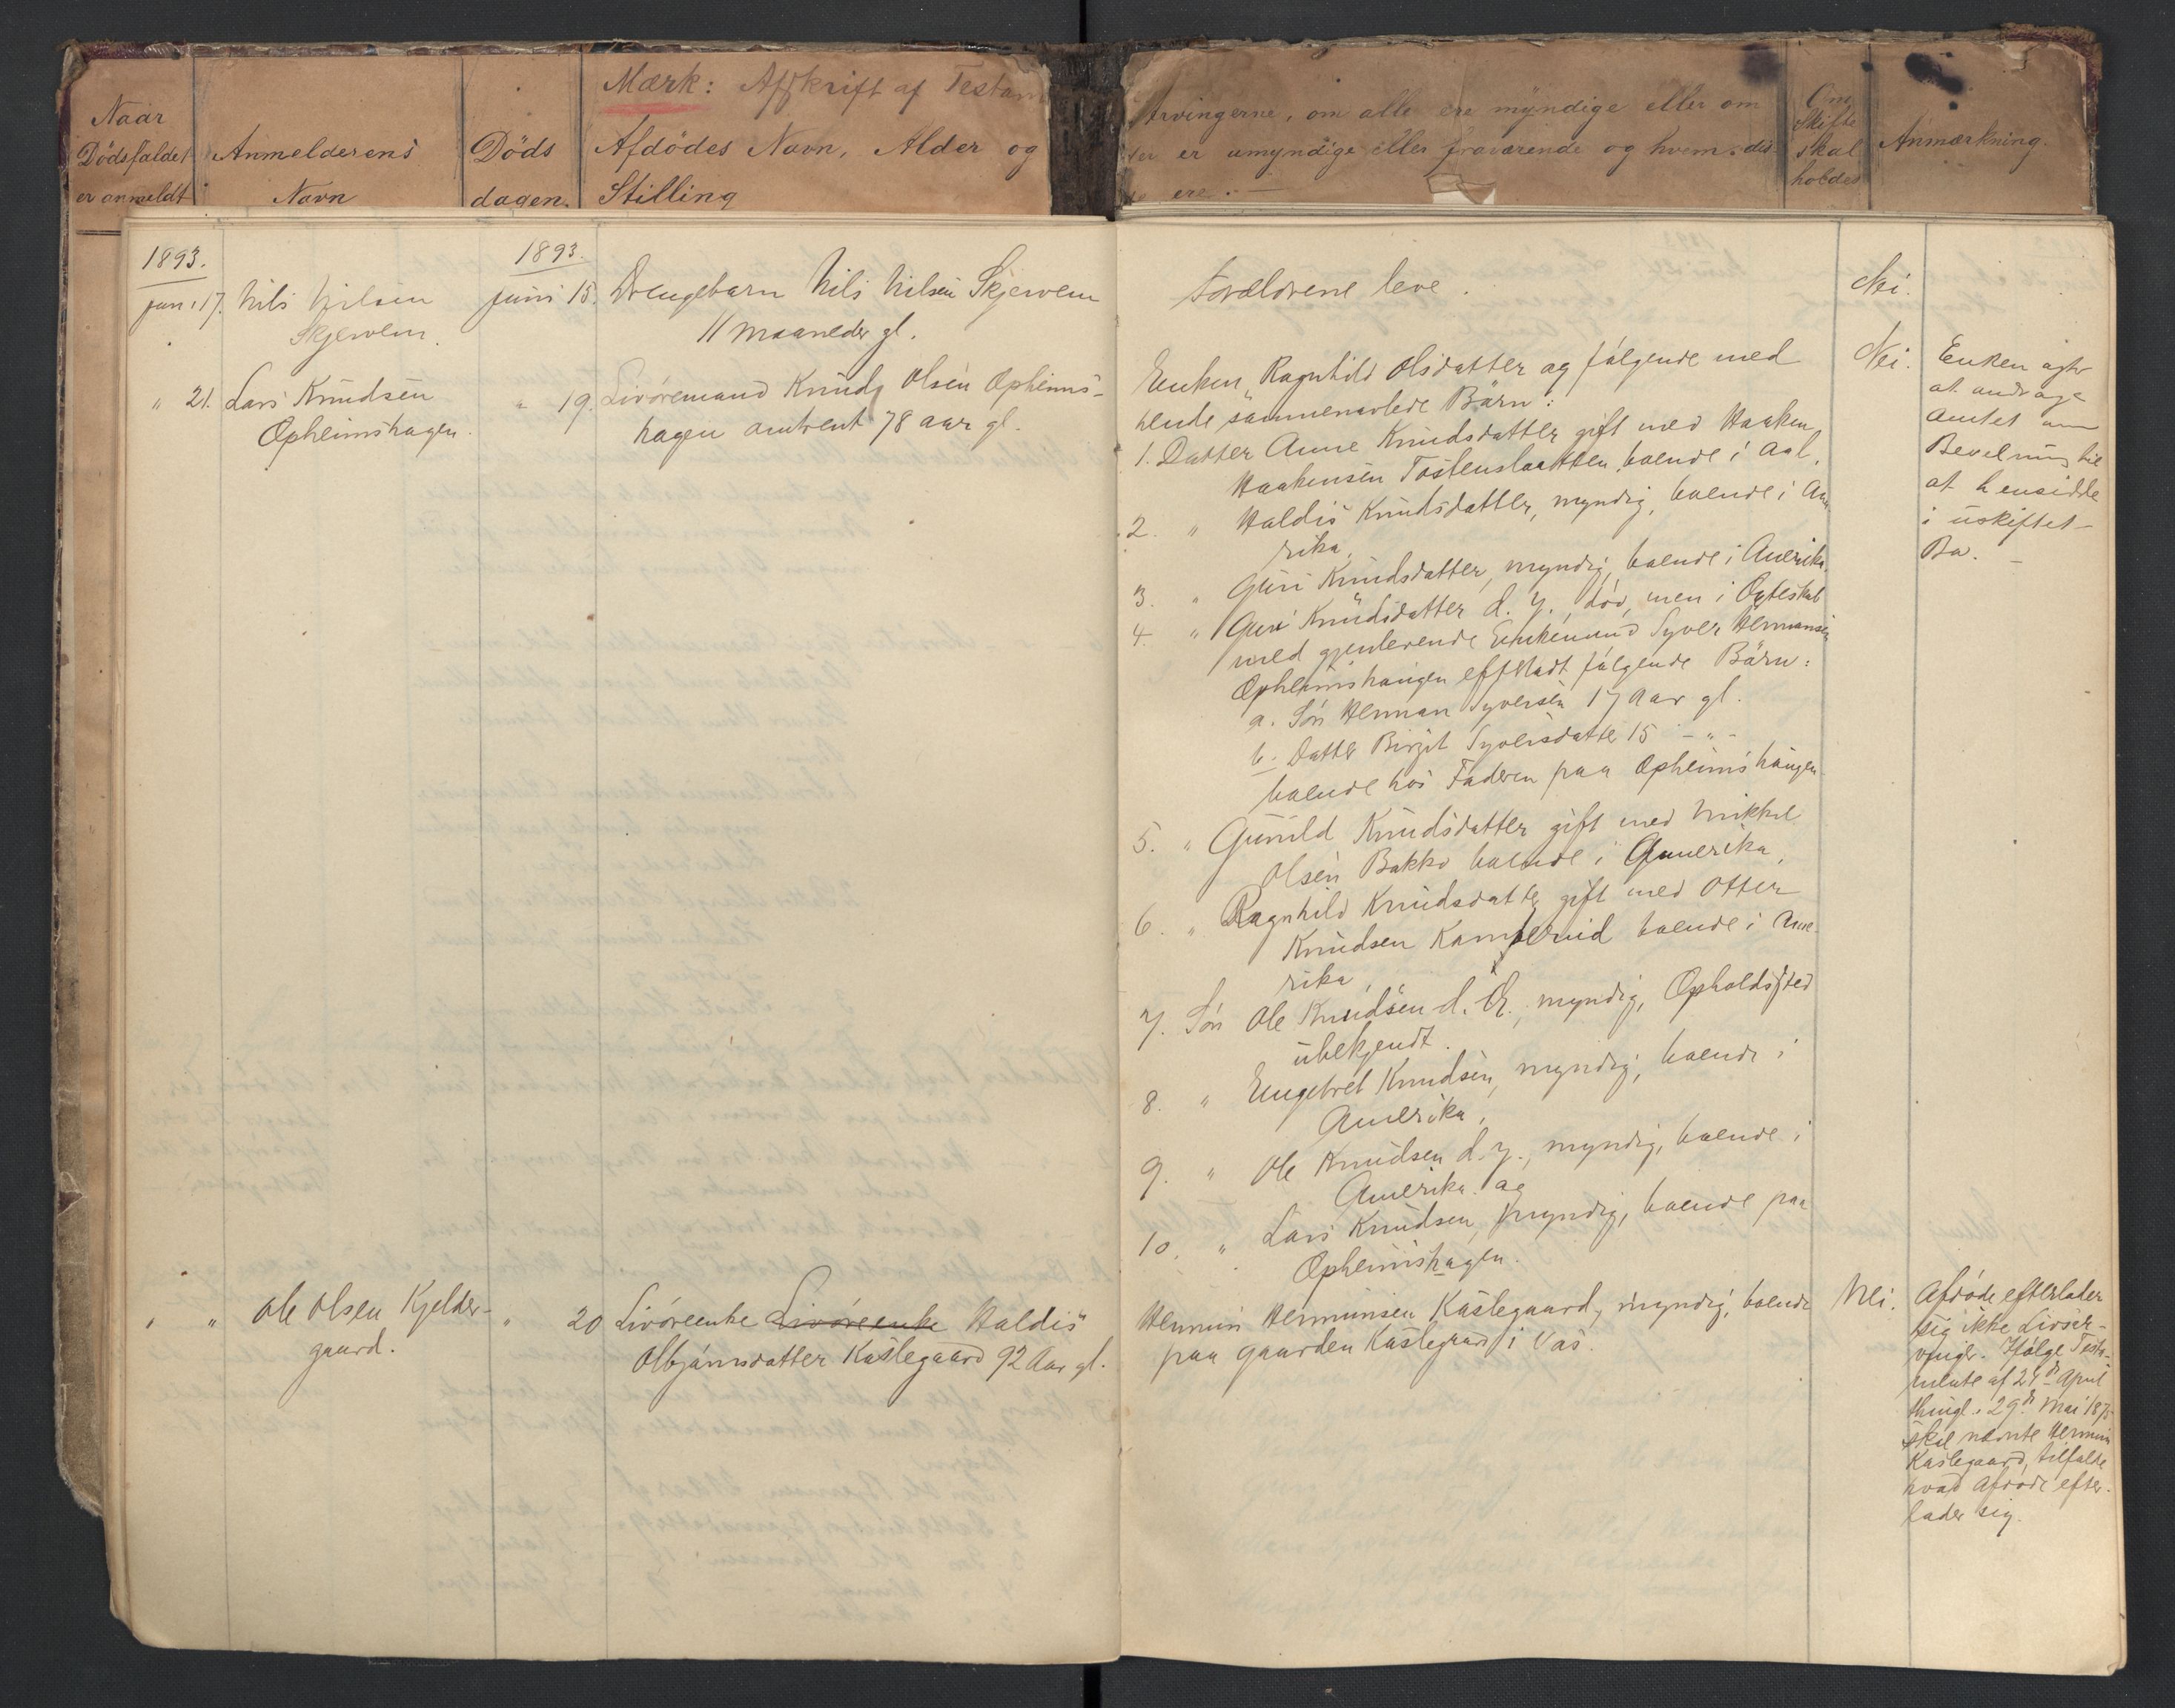 Naar
Dödsfaldet
er anmeldt
Anmelderens
Navn
Döds
dagen.
Mærk: Afskrift af Testam
Afdödes Navn, Alder og
Stilling
Arvingerne, om alle ere myndige eller om
er umyndige eller fraværende og hvem dis
ere.
Om
Skifte
skal
holdes
Anmærkning.
1893.
juni 17. Nils Nilsen
Skjervem.
1893.
juni 15. Drengebarn Nils Nilsen Skjervem
11 maaneder gl.
Forældrene leve.
Nei.
" 21. Lars Knudsen
Opheimshagen.
" 19. Livöremand Knud Olsen Opheims-
hagen omtrent 78 aar gl.
Enken Ragnhild Olsdatter og fölgende med
hende sammenavlede Börn:
1. Datter Anne Knudsdatter gift med Haaken
Haakensen Tostenslaatten boende i Aal,
2. " Haldis Knudsdatter, myndig, boende i Ame
rika,
3. " Guri Knudsdatter, myndig, boende i Amerika.
4. " Guri Knudsdatter d. y., död, men i Ægteskab
med gjenlevende Enkemand Syver Hermansen
Opheimshaugen efterladt fölgende Börn:
a. Sön Herman Syversen 17 Aar gl.
b. Datter Birgit Syversdatter 15 - " -
boende hos Faderen paa Opheimshaugen
5. " Gunild Knudsdatter gift med Mikkel
Olsen Bakko boende i Amerika,
6. " Ragnhild Knudsdatter gift med Otter
Knudsen boende i Ame
rika,
7. Sön Ole Knudsen d. Æ., myndig, Opholdssted
ubekjendt.
8. " Engebret Knudsen, myndig, boende i
Amerika,
9. " Ole Knudsen d. y., myndig, boende i
Amerika og
10. " Lars Knudsen, myndig, boende paa
Opheimshagen.
Nei.
Enken agter
at andrage
Amtet om
Bevilning til
at hensidde
i uskiftet
Bo.
" " Ole Olsen Kjelder-
gaard.
" 20 Livöreenke Livöreenke Haldis
Olbjørnsdatter Kaslegaard 92 Aar gl.
Hermun Hermunsen Kaslegaard, myndig, boende
paa Gaarden Kaslegrad i Vas.
Nei.
Afdöde efterlader
sig ikke Livsar-
vinger. Ifölge Testa-
mente af 24de April
thingl. 29de Mai 1875
skal nævnte Hermun
Kaslegaard, tilfalde
hvad Afdöde efter-
lader sig.